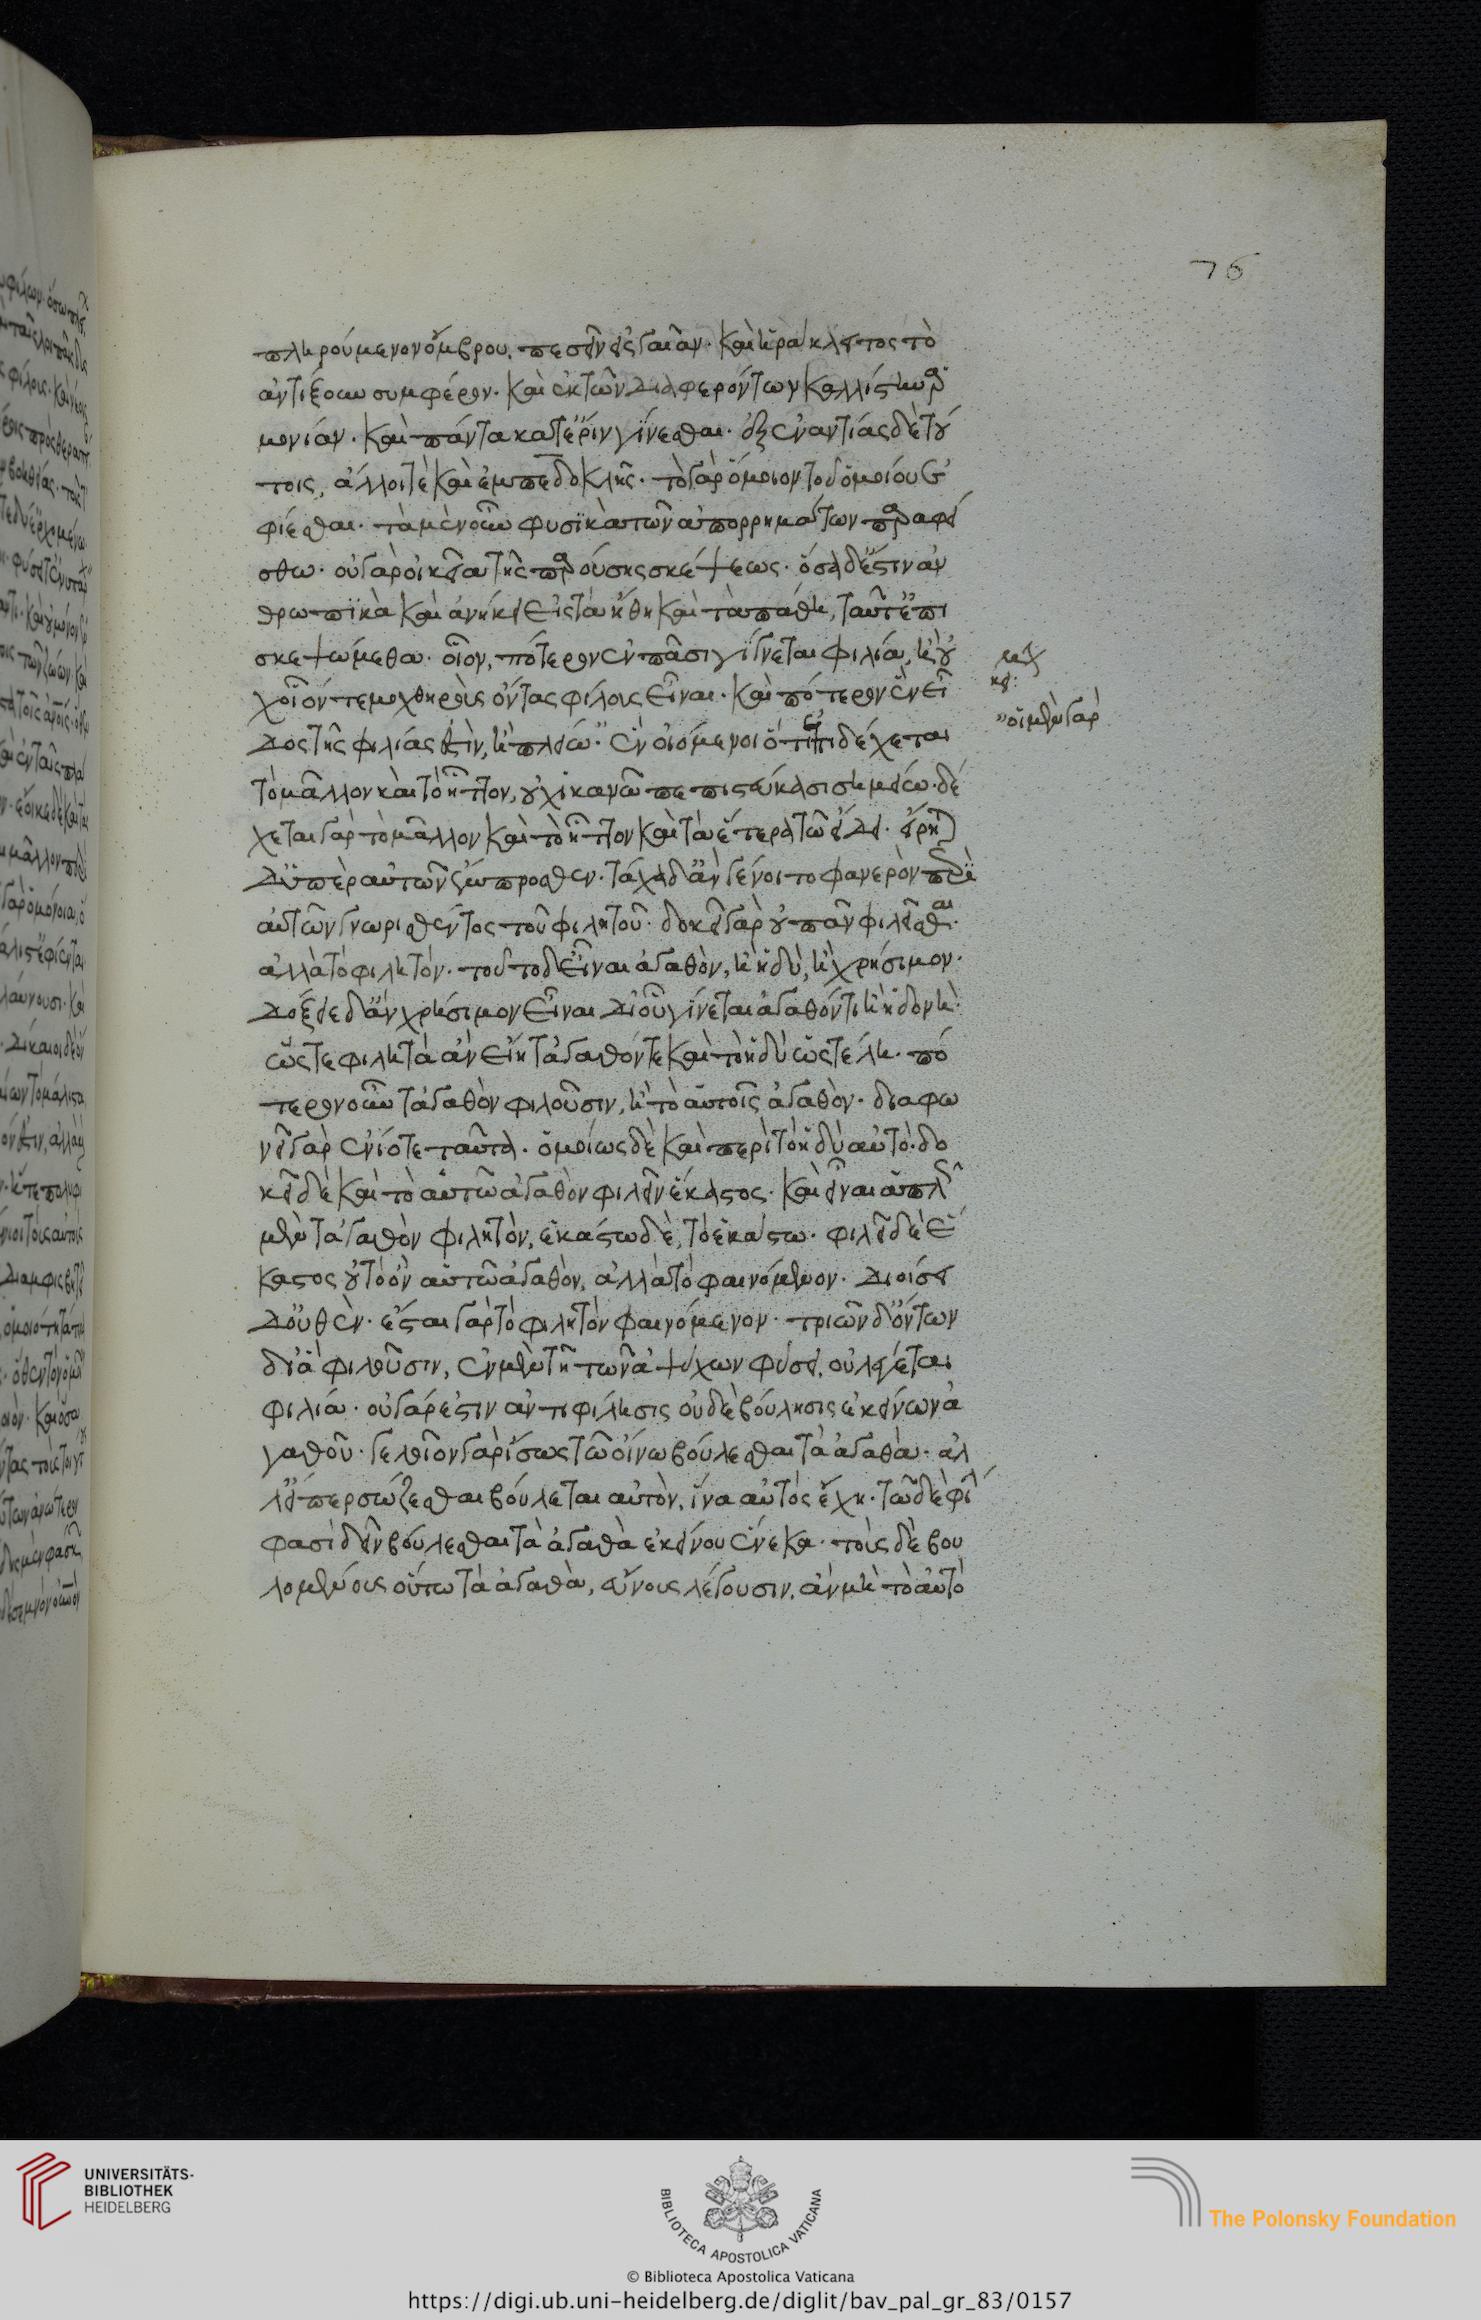 76
πληρούμενον ὄμβρου, πεσεῖν εἰς γαῖαν· καὶ ἡράκλειτος τὸ
ἀντίξουν συμφέρον· καὶ ἐκ τῶν διαφερόντων καλλίστην ἁρ
μονίαν· καὶ πάντα κατ' ἔριν γίνεσθαι· ἐξ ἐναντίας δὲ τού
τοις, ἄλλοι τὲ καὶ ἐμπεδοκλῆς· τὸ γὰρ ὅμοιον τοῦ ὁμοίου ἐ
φίεσθαι· τὰ μὲν οὖν φυσικὰ τῶν ἀπορρημάτων παραφεί
σθω· οὐ γὰρ οἰκεῖα τῆς παρούσης σκέψεως· ὅσα δ' ἔστιν ἀν
θρωπϊκὰ καὶ ἀνήκει εἰς τὰ ἤθη καὶ τὰ πάθη, ταῦτ' ἐπι
σκεψώμεθα· οἷον, πότερον ἐν πᾶσι γίγνεται φιλία, ἢ οὐ
χ οἷόν τε μοχθηροὺς ὄντας φίλους εἶναι· καὶ πότερον ἓν εἶ
δος τῆς φιλίας ἐστὶν, ἢ πλείω· ἓν οἱ οἰόμενοι ὅτι ἐπιδέχεται
τὸ μᾶλλον καὶ τὸ ἧττον, οὐχ ἱκανῶ πεπιστεύκασι σημείω· δέ
χεται γὰρ τὸ μᾶλλον καὶ τὸ ἧττον καὶ τὰ ἕτερα τῶ εἴδει· εἴρηται
δ' ὑπὲρ αὐτῶν ἔμπροσθεν· τάχα δ' ἂν γένοιτο φανερὸν περὶ
αὐτῶν γνωρισθέντος τοῦ φιλητοῦ· δοκεῖ γὰρ οὐ πᾶν φιλεῖσθαι·
ἀλλὰ τὸ φιλητόν· τοῦτο δ' εἶναι ἀγαθὸν, ἢ ἡδὺ, ἢ χρήσιμον·
δόξειε δ' ἂν χρήσιμον εἶναι δι' οὗ γίνεται ἀγαθόν τι ἢ ἡδονὴ·
ὥστε φιλητὰ ἂν εἴη τἀγαθόν τε καὶ τὸ ἡδὺ ὡς τέλη· πό
τερον οὖν τἀγαθὸν φιλοῦσιν, ἢ τὸ αὑτοῖς ἀγαθὸν· διαφω
νεῖ γὰρ ἐνίοτε ταῦτα· ὁμοίως δὲ καὶ περὶ τὸ ἡδὺ αὐτό· δο
κεῖ δὲ καὶ τὸ αὑτῶ ἀγαθὸν φιλεῖν ἕκαστος· καὶ εἶναι ἁπλῶς
μὲν τἀγαθὸν φιλητὸν, ἑκάστω δὲ, τὸ ἑκάστω· φιλεῖ δὲ ἕ
καστος οὐ τὸ ὂν αὑτῶ ἀγαθὸν, ἀλλὰ τὸ φαινόμενον· διοίσει
δ' οὐθὲν· ἔσται γὰρ τὸ φιλητὸν φαινόμενον· τριῶν δ' ὄντων
δι' ἃ φιλοῦσιν, ἐν μὲν τῆ τῶν ἀψύχων φύσει, οὐ λέγεται
φιλία· οὐ γάρ ἐστιν ἀντιφίλησις οὐδὲ βούλησις ἐκείνων ἀ
γαθοῦ· γελοῖον γὰρ ἴσως τῶ οἴνω βούλεσθαι τὰ ἀγαθὰ· ἀλ
λ' εἴπερ σώζεσθαι βούλεται αὐτὸν, ἵνα αὐτὸς ἔχη· τῶ δὲ φί
φασὶ δεῖν βούλεσθαι τὰ ἀγαθὰ ἐκείνου ἕνεκα· τοὺς δὲ βου
λομένους οὕτω τὰ ἀγαθὰ, εὔνους λέγουσιν, ἂν μὴ τὸ αὐτὸ
οἱ μὲν γὰρ
UNIVERSITÄTS-
BIBLIOTHEK
HEIDELBERG
BIBLIOTECA APOSTOLICA VATICANA
© Biblioteca Apostolica Vaticana
The Polonsky Foundation
https://digi.ub.uni-heidelberg.de/diglit/bav_pal_gr_83/0157